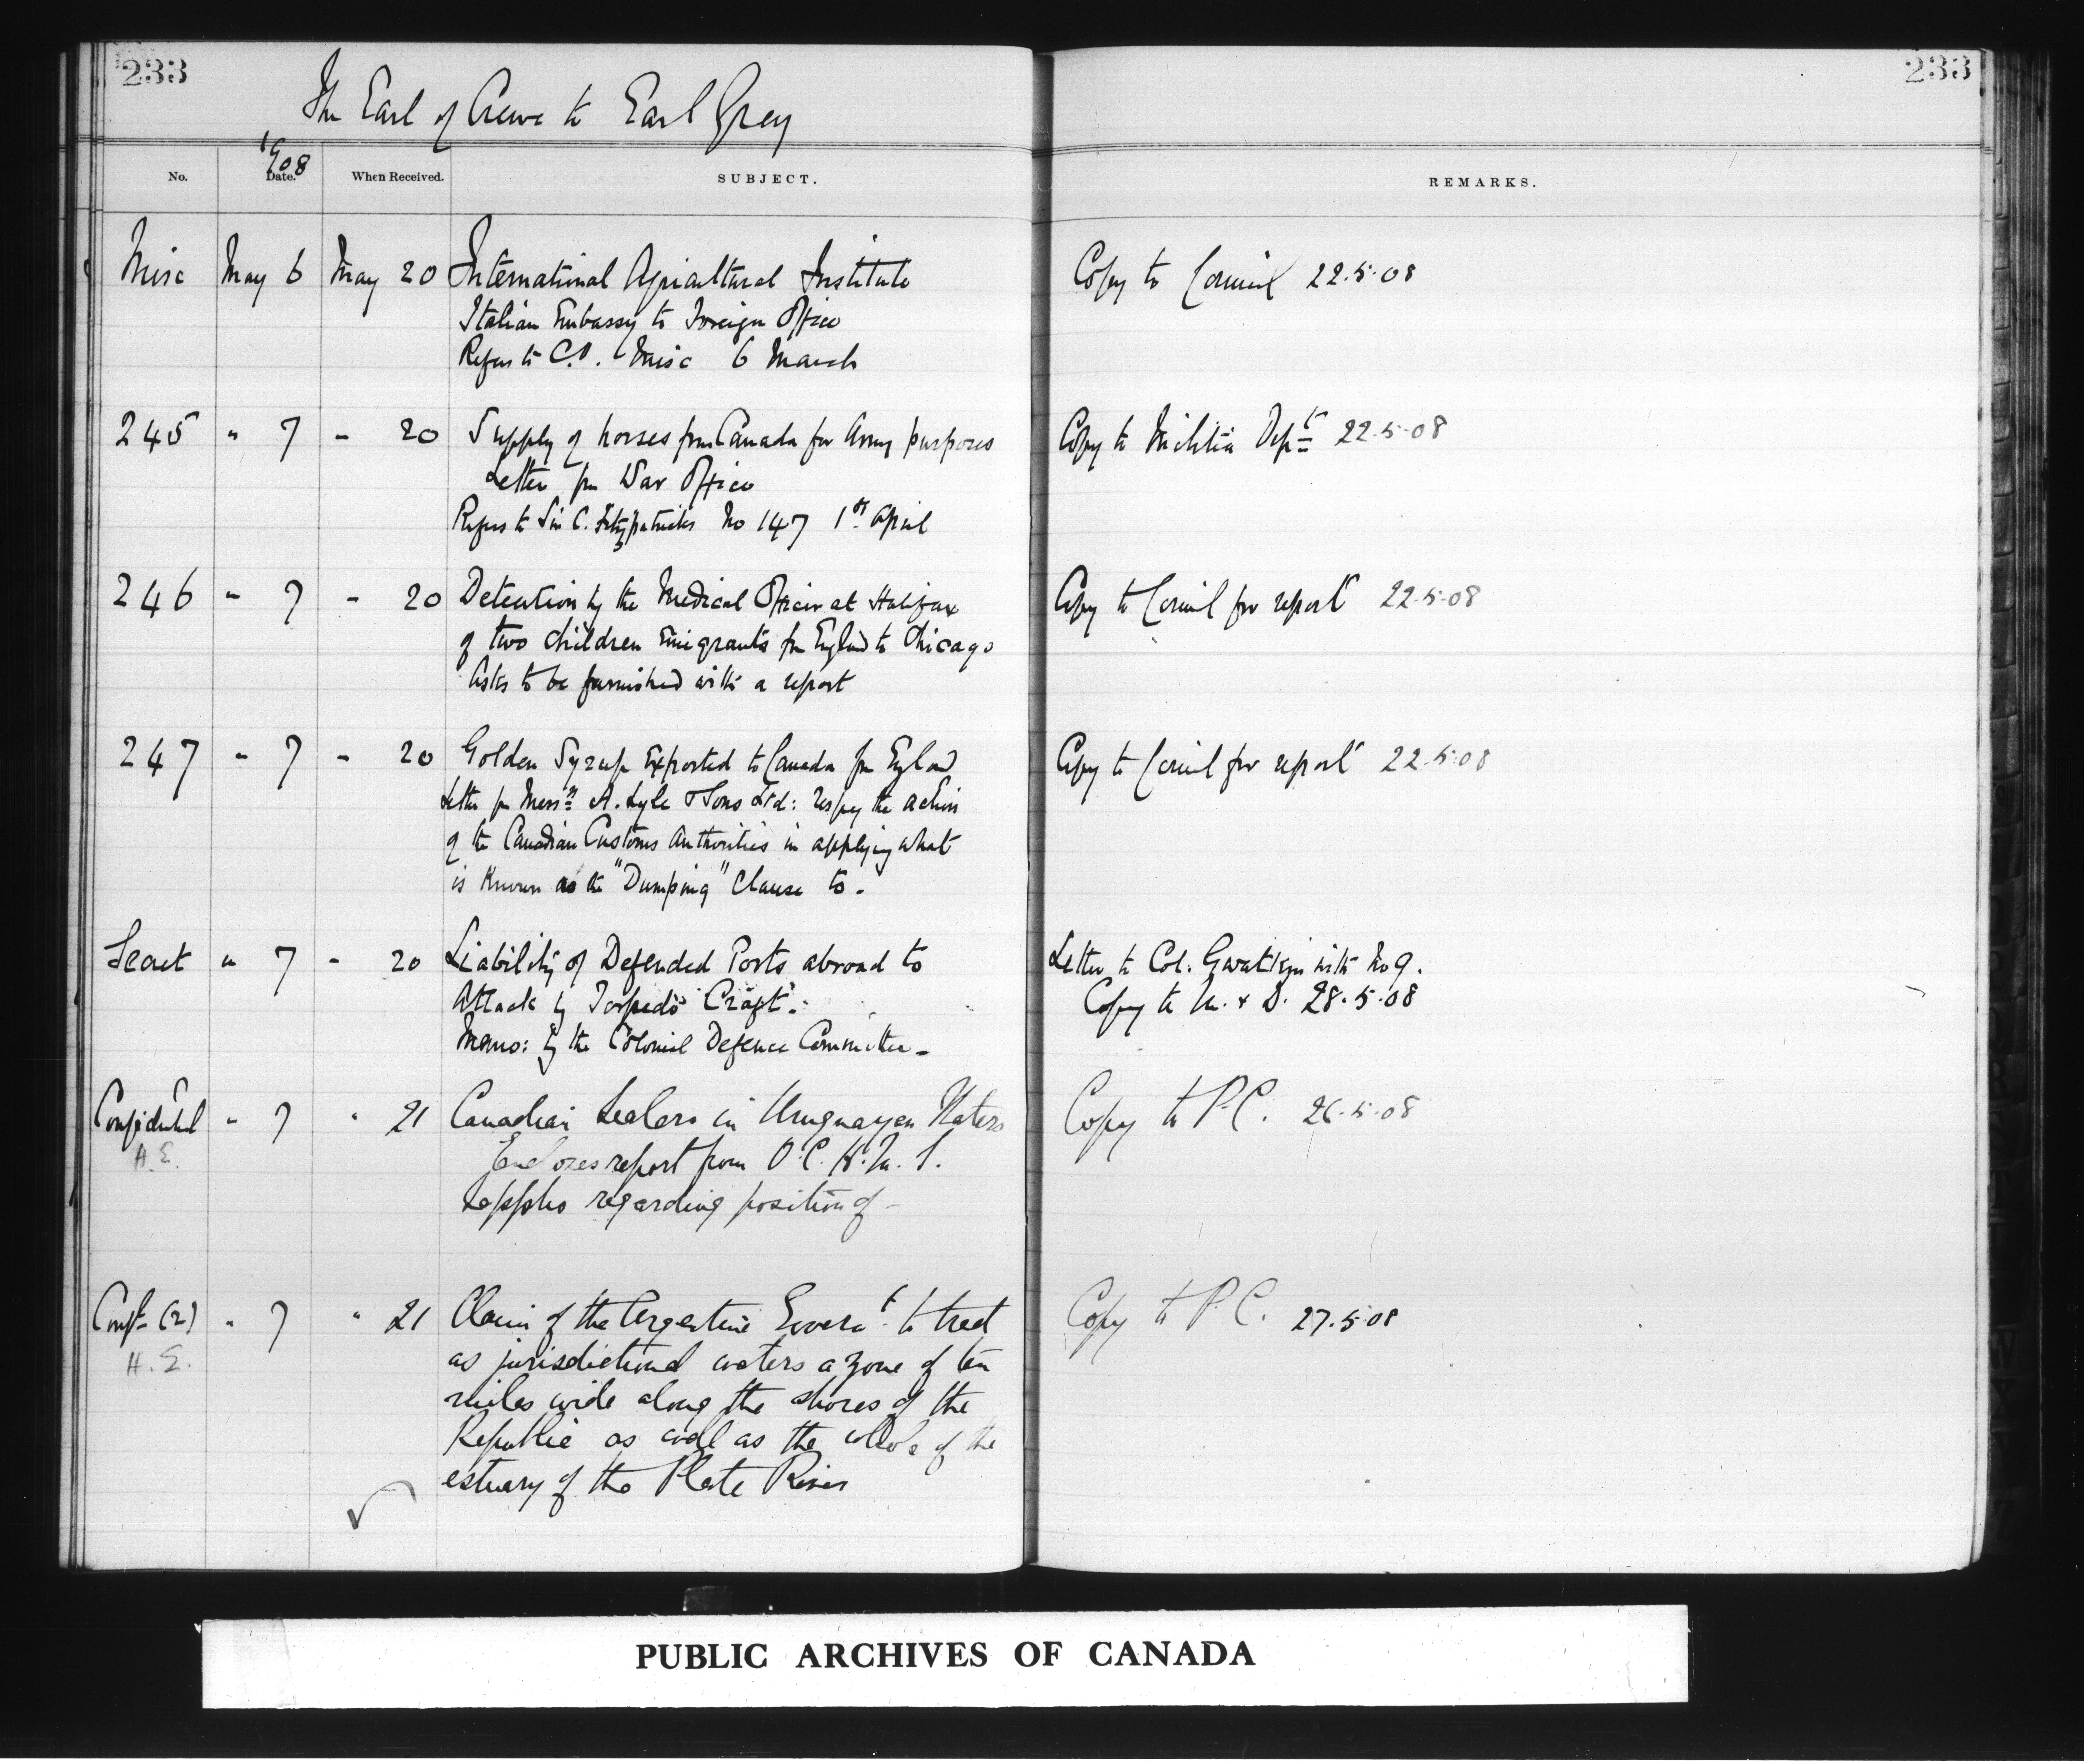 233
233
The Earl of Crewe to Earl Grey
1908
No.
Date.
When Received.
SUBJECT.
REMARKS.
Misc May 6 May 20 International Agricultural Institute
Italian Embassy to Foreign Office
Refers to C.O. Misc 6 March
Copy to Council 22.5.08
245 " 7 " 20 Supply of horses from Canada for Army purposes
Letter fm War Office
Refers to Sir C. Fitzpatricks No 147 1st April
Copy to Militia Dept 22.5.08
246 " 7 " 20 Detention by the Medical Officer at Halifax
of two children Emigrants fm England to Chicago
Asks to be furnished with a report
Copy to Council for report 22.5.08
247 " 7 " 20 Golden Syrup Exported to Canada fm England
Letter fm Messrs A. Lyle & Sons Ltd: respg the action
of the Canadian Customs Authorities in applying what
is known as the "Dumping" Clause to -
Copy to Council for report 22.5.08
Secret " 7 " 20 Liability of Defended Ports abroad to
Attack by Torpedo Craft.
Memo: by the Colonial Defence Committee -
Letter to Col. Gwatkin with No 9.
Copy to M. & D. 28.5.08
Confidential " 7 " 21 Canadian Sealers in Uruguayan Waters
H.E.
Encloses report from O.C. H.M.S.
Sappho regarding position of -
Copy to P.C. 26.5.08
Conft (2) " 7 " 21 Claim of the Argentine Governt to treat
H.E.
as jurisdictional waters a zone of ten
miles wide along the shores of the
Republic as well as the whole of the
estuary of the Plate River
Copy to P.C. 27.5.08
PUBLIC ARCHIVES OF CANADA